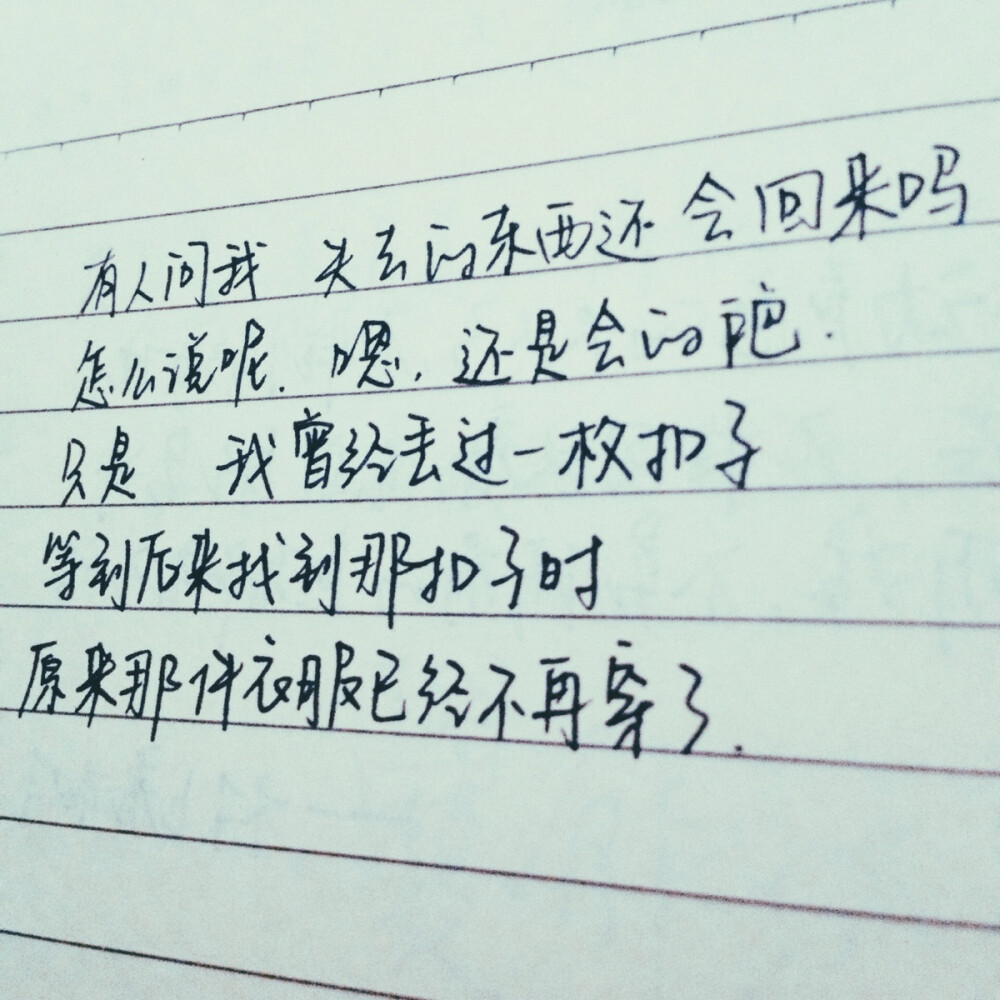 有人问我 失去的东西还会回来吗
怎么说呢. 嗯. 还是会的吧.
只是 我曾经丢过一枚扣子
等到后来找到那扣子时
原来那件衣服已经不再穿了.